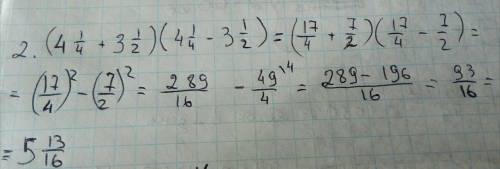 2. (4 1/4 + 3 1/2)(4 1/4 - 3 1/2) = (17/4 + 7/2)(17/4 - 7/2) =
= (17/4)² - (7/2)² = 289/16 - 49/4 \4 = 289 - 196/16 = 93/16 =
= 5 13/16